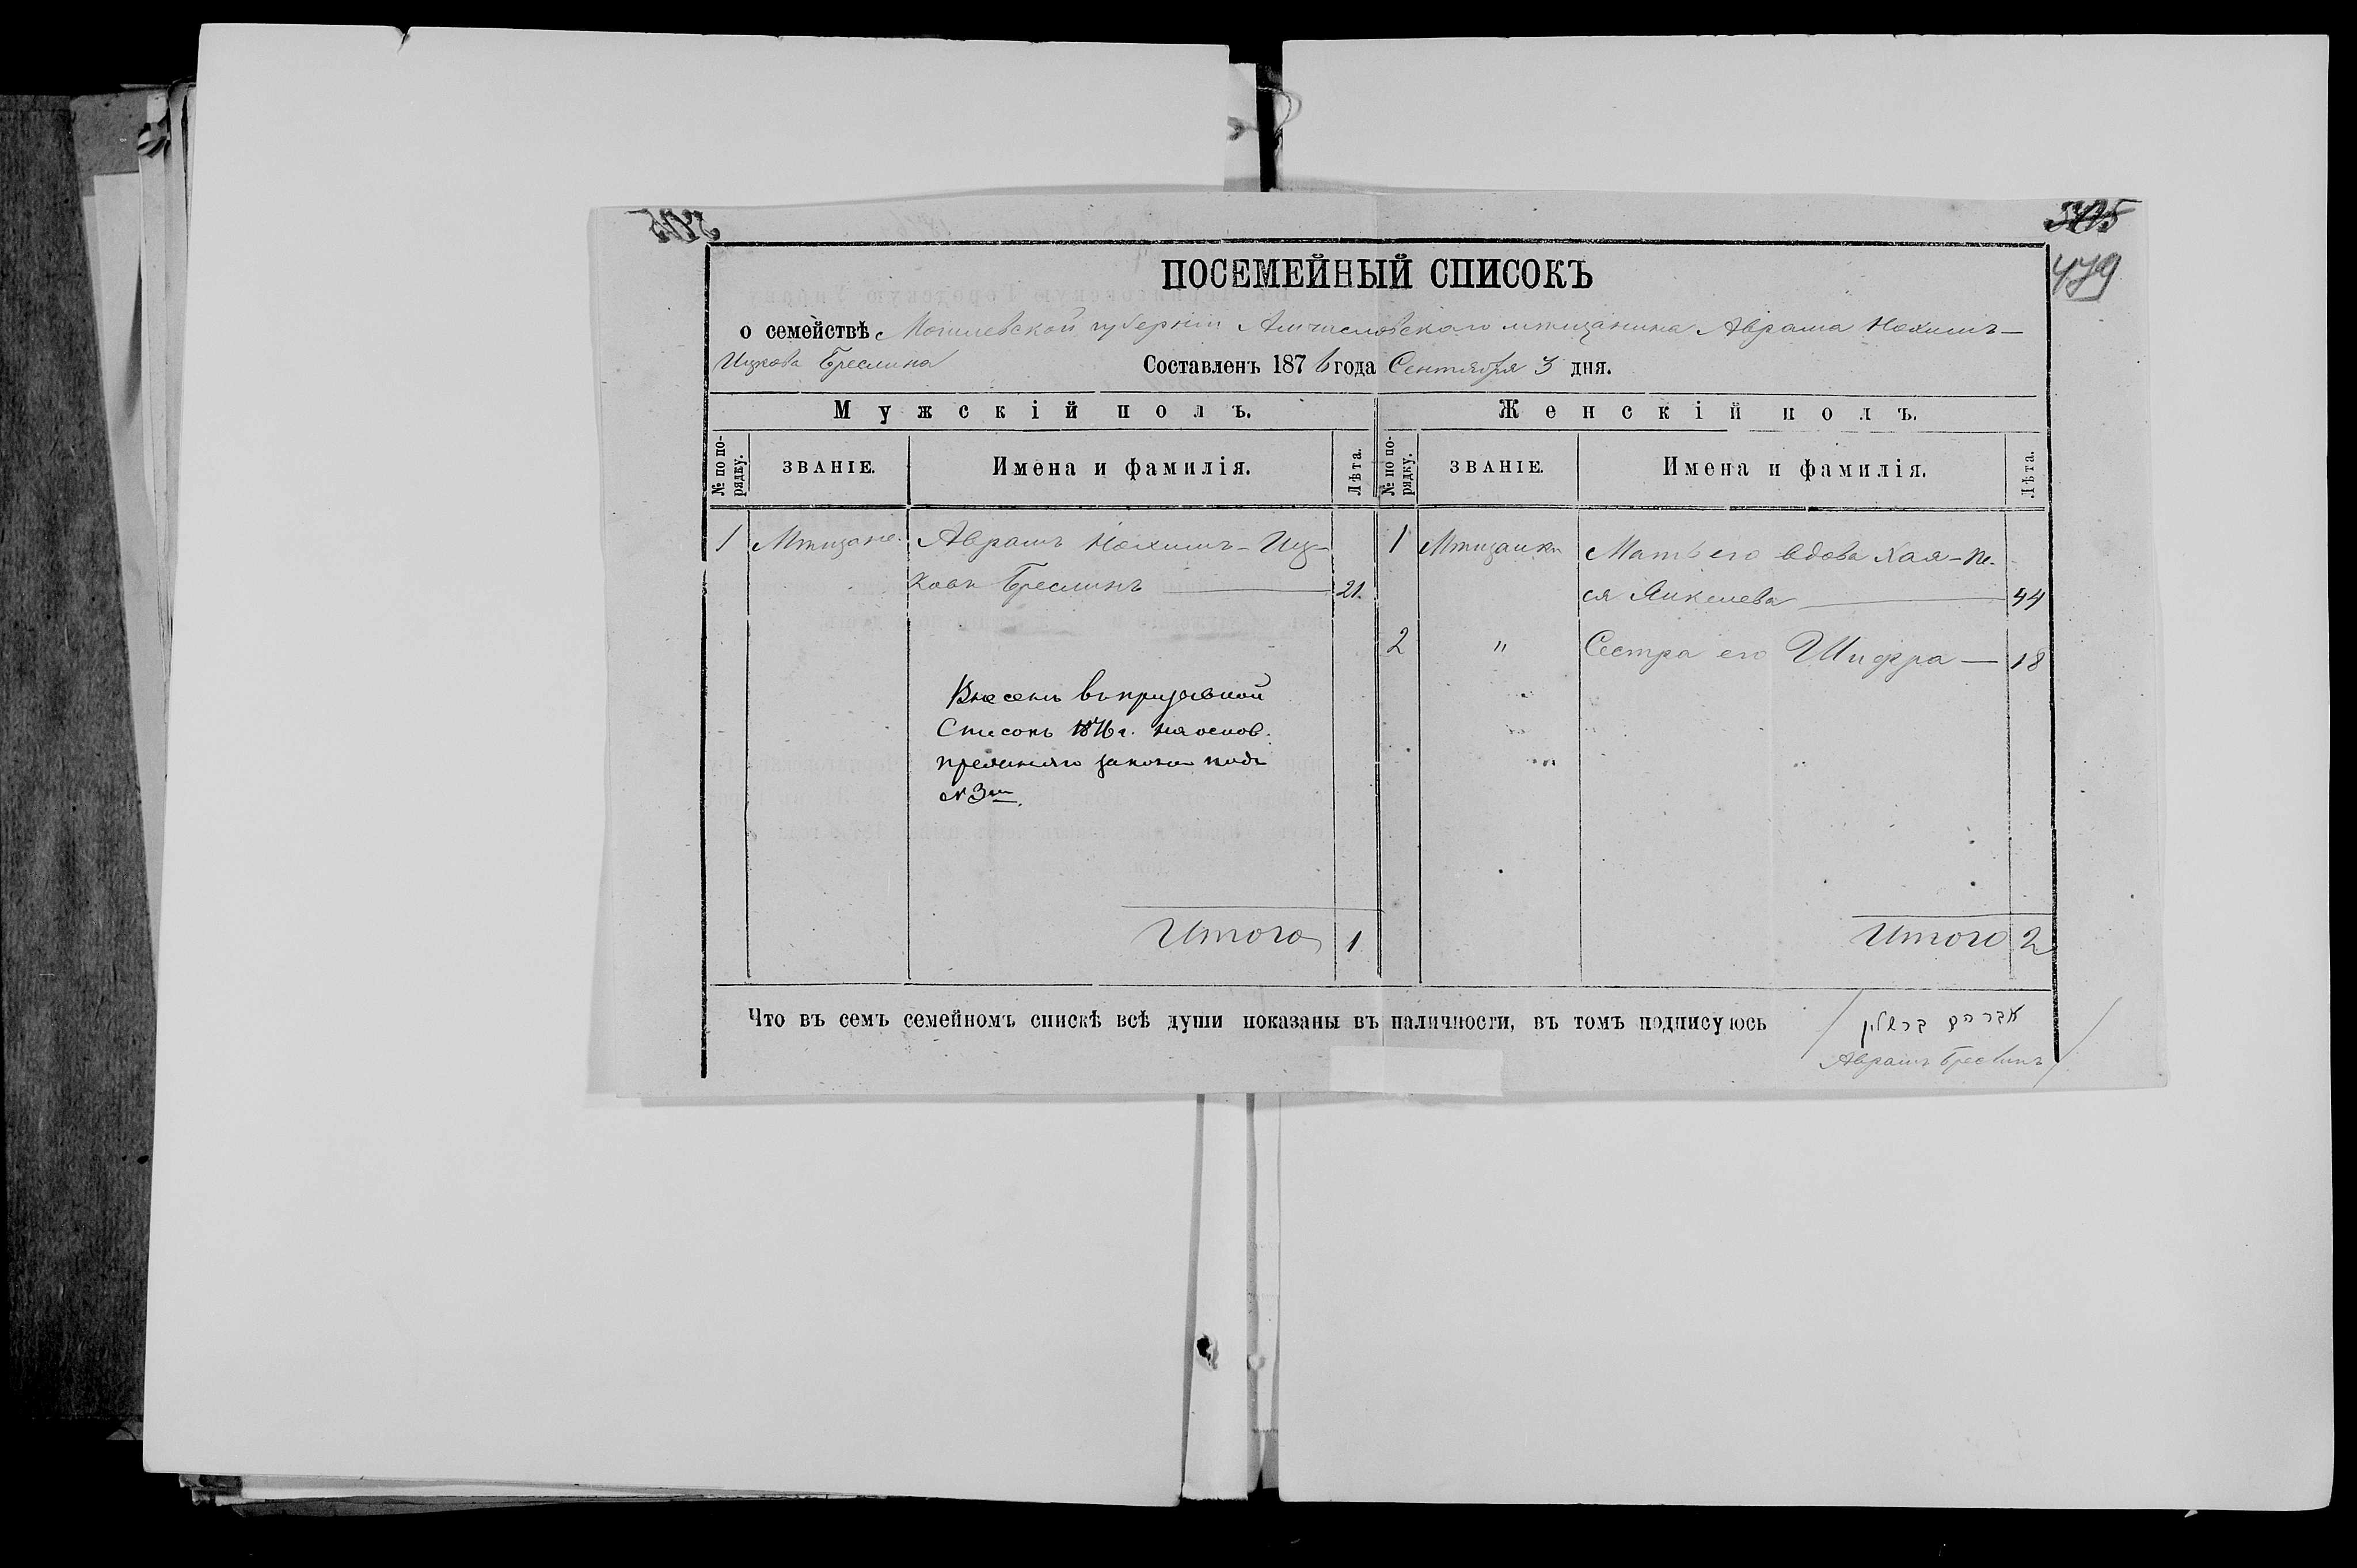 479
ПОСЕМЕЙНЫЙ СПИСОКЪ
о семействѣ Могилевской губерніи Амчиславскаго мѣщанина Абрама Нохимъ-
Ицкова Бреслина Составленъ 1876 года Сентября 3 дня.
Мужскій полъ. Женскій полъ.
№ по по-рядку. ЗВАНІЕ. Имена и фамилія. Лѣта. № по по-рядку. ЗВАНІЕ. Имена и фамилія. Лѣта.
1 Мѣщане. Абрамъ Нохимъ-Иц- 1 Мѣщанки Мать его вдова Хая-Пе-
ковъ Бреслинъ 21. ся Янкелева 44
2 " Сестра его Шифра — 18
Внесенъ въ призывной
Списокъ 1876 г. на основ.
прежняго закона подъ
№ 3мъ.
Итого 1 Итого 2
Что въ семъ семейномъ спискѣ всѣ души показаны въ наличности, въ томъ подписуюсь אברהם ברשלין
Абрамъ Бреслинъ